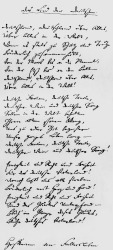 Das Lied der Deutschen.
Deutschland, Deutschland über Alles,
Über Alles in der Welt,
Wenn es stets zu Schutz und Trutze
Brüderlich zusammenhält,
Von der Maas bis an die Memel,
Von der Etsch bis an den Belt –
Deutschland, Deutschland über Alles,
Über Alles in der Welt!
Deutsche Frauen, deutsche Treue,
Deutscher Wein und deutscher Sang
Sollen in der Welt behalten
Ihren alten schönen Klang,
Uns zu edler That begeistern
Unser ganzes Leben lang –
Deutsche Frauen, deutsche Treue,
Deutscher Wein und deutscher Sang!
Einigkeit und Recht und Freiheit
Für das deutsche Vaterland!
Danach lasst uns alle streben
Brüderlich mit Herz und Hand!
Einigkeit und Recht und Freiheit
Sind des Glückes Unterpfand –
Blüh im Glanze dieses Glückes,
Blühe deutsches Vaterland!
Hoffmann von Fallersleben